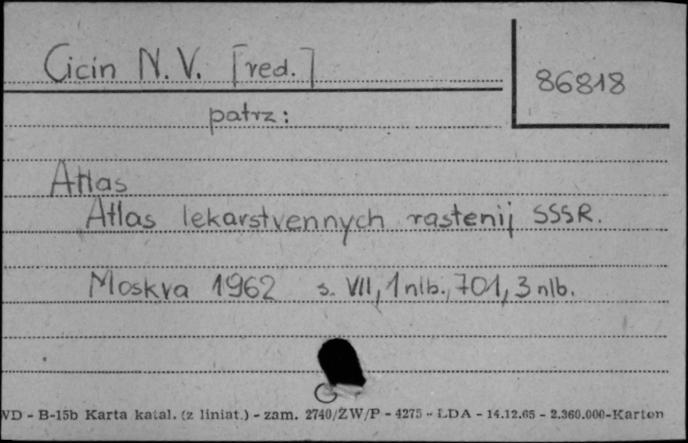 Cicin N. V. [red.]
86818
patrz:
Atlas
Atlas lekarstvennych rastenij SSSR.
Moskva 1962 s. VII, 1 nlb., 701, 3 nlb.
VD - B-15b Karta katal. (z liniat.) - zam. 2740/ŻW/P - 4275 - LDA - 14.12.65 - 2.360.000-Karton